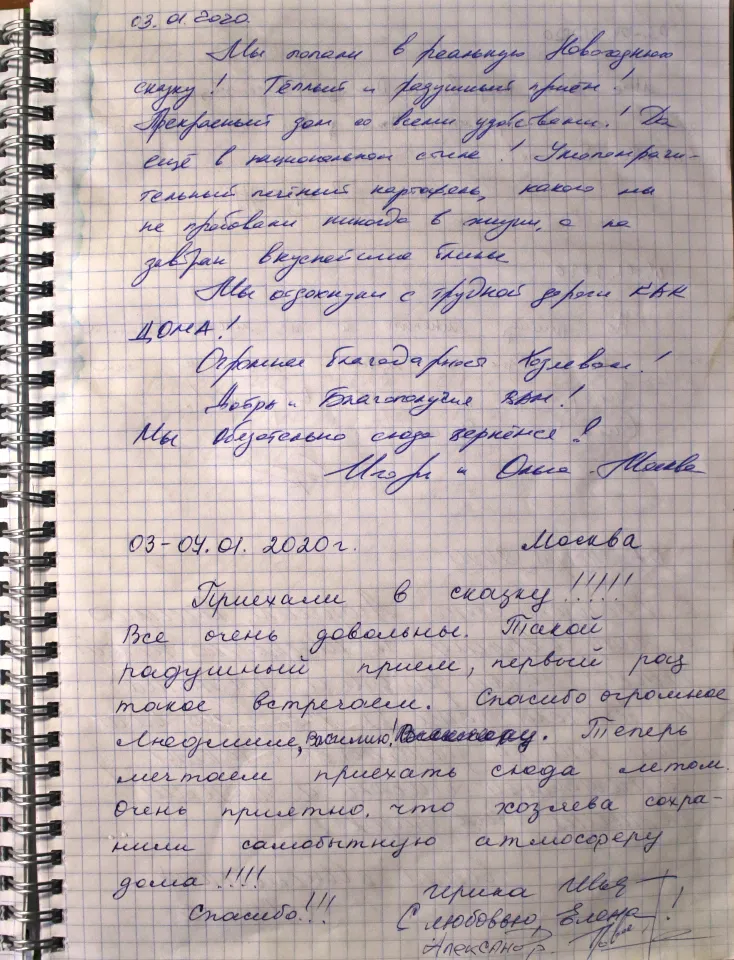 03.01.2020.
Мы попали в реальную Новогоднюю
сказку! Тёплый и радушный приём!
Прекрасный дом со всеми удобствами! Да
ещё в национальном стиле! Умопомрачи-
тельный печёный картофель, какого мы
не пробовали никогда в жизни, а на
завтрак вкуснейшие блины
Мы отдохнули с трудной дороги КАК
ДОМА!
Огромная благодарность Хозяевам!
Добра и Благополучия ВАМ!
Мы Обязательно сюда вернёмся!
Игорь и Ольга Москва
03-04.01.2020г. Москва
Приехали в сказку!!!!!
Все очень довольны. Такой
радушный прием, первый раз
такое встречаем. Спасибо огромное
Людмиле, Василию! Теперь
мечтаем приехать сюда летом.
Очень приятно, что хозяева сохра-
нили самобытную атмосферу
дома!!!!
Ирина Илья
Спасибо!!! С любовью, Елена!
Александр